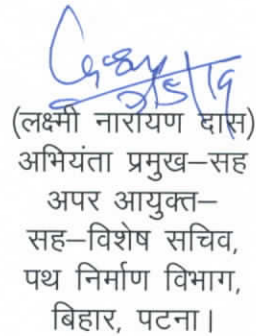 (लक्ष्मी नारायण दास)
अभियंता प्रमुख–सह
अपर आयुक्त–
सह–विशेष सचिव,
पथ निर्माण विभाग,
बिहार, पटना।